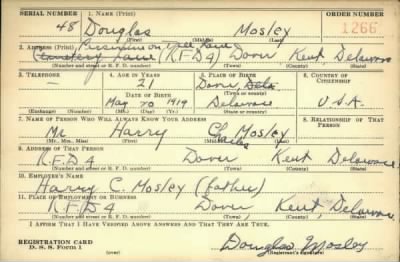 SERIAL NUMBER 1. NAME (Print) ORDER NUMBER
48 Douglas Mosley 1266
(First) (Middle) (Last)
2. ADDRESS (Print) Persimmon Tree Lane
Cemetery Lane (R.F.D 4) Dover Kent, Delaware
(Number and street or R. F. D. number) (Town) (County) (State)
3. TELEPHONE 4. AGE IN YEARS 5. PLACE OF BIRTH 6. COUNTRY OF CITIZENSHIP
— 21 Dover Dela
DATE OF BIRTH (Town or county)
May 20 1919 Delaware U.S.A.
(Exchange) (Number) (Mo.) (Day) (Yr.) (State or country)
7. NAME OF PERSON WHO WILL ALWAYS KNOW YOUR ADDRESS 8. RELATIONSHIP OF THAT PERSON
Mr Harry Mosley
(Mr., Mrs., Miss) (First) (Middle) (Last)
9. ADDRESS OF THAT PERSON
R.F.D 4 Dover Kent Delaware
(Number and street or R. F. D. number) (Town) (County) (State)
10. EMPLOYER'S NAME
Harry C. Mosley (father)
11. PLACE OF EMPLOYMENT OR BUSINESS
R.F.D 4 Dover, Kent, Delaware
(Number and street or R. F. D. number) (Town) (County) (State)
I AFFIRM THAT I HAVE VERIFIED ABOVE ANSWERS AND THAT THEY ARE TRUE.
REGISTRATION CARD
D. S. S. Form 1 Douglas Mosley
(Registrant's signature)